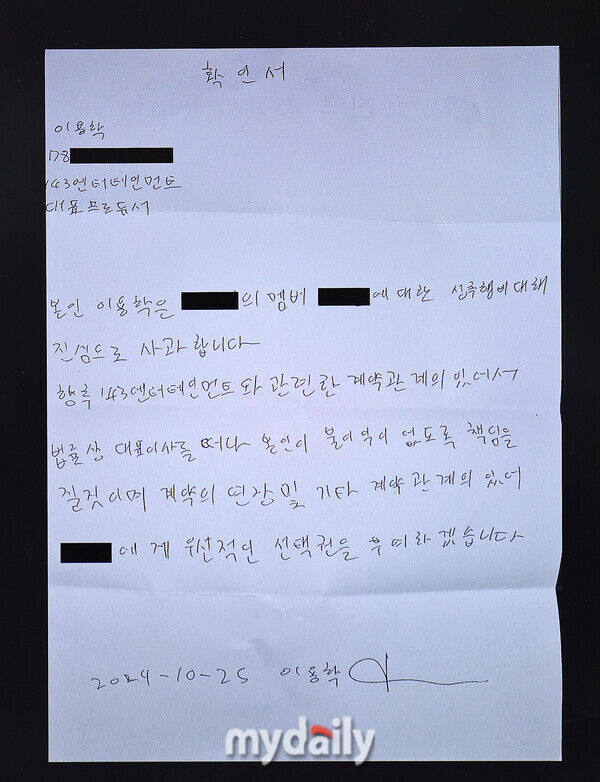 확인서
이용학
78
143엔터테인먼트
대표프로듀서
본인 이용학은 의 멤버 에 대한 성추행에대해
진심으로 사과합니다
향후 143엔터테인먼트와 관련한 계약관계의 있어서
법률상 대표이사를 떠나 본인이 불이익이 없도록 책임을
질것이며 계약의 연장및 기타 계약관계의 있어
에게 우선적인 선택권을 부여하겠습니다
2024-10-25 이용학
mydaily